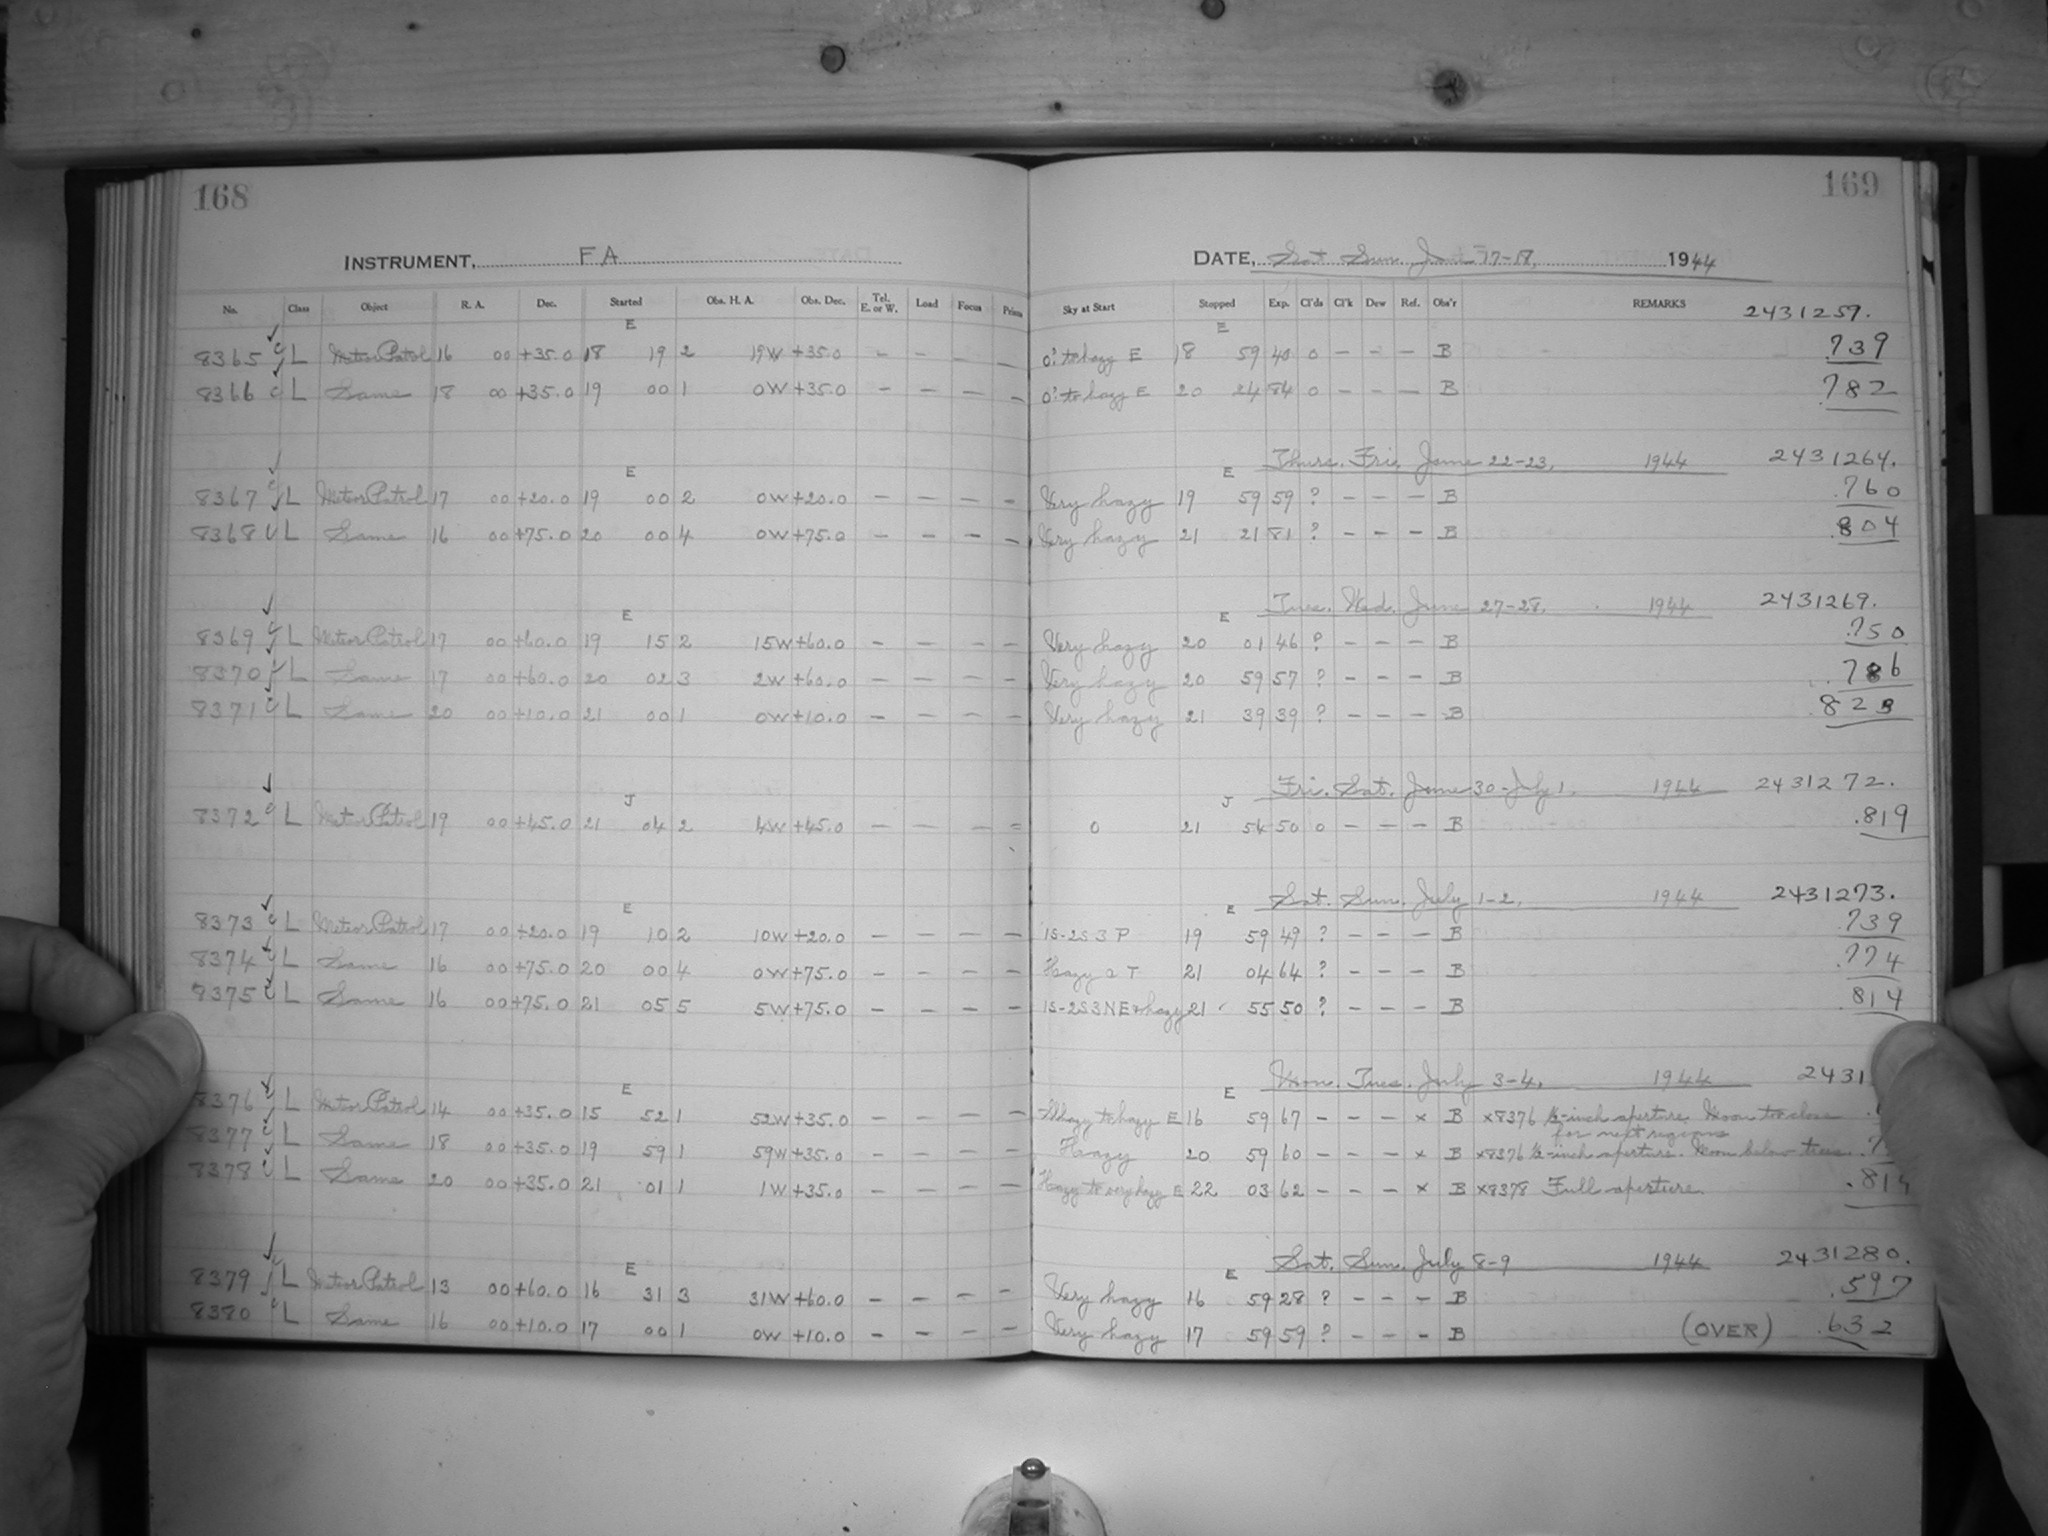 168 169
INSTRUMENT, FA DATE, Sat. Sun. June 17-18, 1944
No. Class Object R. A. Dec. Started Obs. H. A. Obs. Dec. Tel. E. or W. Load Focus Prism Sky at Start Stopped Exp. Cl'ds Cl'k Dew Ref. Obs'r REMARKS 2431259.
E E
8365 L Meteor Patrol 16 00 +35.0 18 19 2 19W +35.0 — — — — 0? to hazy E 18 59 40 0 — — — B .739
8366 L Same 18 00 +35.0 19 00 1 0W +35.0 — — — — 0? to hazy E 20 24 84 0 — — — B .782
Thurs. Fri. June 22-23, 1944 2431264.
E E
8367 L Meteor Patrol 17 00 +20.0 19 00 2 0W +20.0 — — — — Very hazy 19 59 59 ? — — — B .760
8368 L Same 16 00 +75.0 20 00 4 0W +75.0 — — — — Very hazy 21 21 81 ? — — — B .804
Tues. Wed. June 27-28, 1944 2431269.
E E
8369 L Meteor Patrol 17 00 +60.0 19 15 2 15W +60.0 — — — — Very hazy 20 01 46 ? — — — B .750
8370 L Same 17 00 +60.0 20 02 3 2W +60.0 — — — — Very hazy 20 59 57 ? — — — B .786
8371 L Same 20 00 +10.0 21 00 1 0W +10.0 — — — — Very hazy 21 39 39 ? — — — B .82
Fri. Sat. June 30-July 1, 1944 2431272.
J J
8372 L Meteor Patrol 19 00 +45.0 21 04 2 4W +45.0 — — — — 0 21 54 50 0 — — — B .819
Sat. Sun. July 1-2, 1944 2431273.
E E
8373 L Meteor Patrol 17 00 +20.0 19 10 2 10W +20.0 — — — — 1S-2S 3 P 19 59 49 ? — — — B .739
8374 L Same 16 00 +75.0 20 00 4 0W +75.0 — — — — Hazy a T 21 04 64 ? — — — B .774
8375 L Same 16 00 +75.0 21 05 5 5W +75.0 — — — — 1S-2S3NE & hazy 21 55 50 ? — — — B .814
Mon. Tues. July 3-4, 1944 2431
E E
8376 L Meteor Patrol 14 00 +35.0 15 52 1 52W +35.0 — — — — hazy to hazy E 16 59 67 — — — x B x8376 ½-inch aperture. Moon too close
for next regions
8377 L Same 18 00 +35.0 19 59 1 59W +35.0 — — — — Hazy 20 59 60 — — — x B x8376 ½-inch aperture. Moon below trees. .7
8378 L Same 20 00 +35.0 21 01 1 1W +35.0 — — — — Hazy to very hazy E 22 03 62 — — — x B x8378 Full aperture. .814
Sat. Sun. July 8-9 1944 2431280.
E E
8379 L Meteor Patrol 13 00 +60.0 16 31 3 31W +60.0 — — — — Very hazy 16 59 28 ? — — — B .597
8380 L Same 16 00 +10.0 17 00 1 0W +10.0 — — — — Very hazy 17 59 59 ? — — — B (OVER) .632